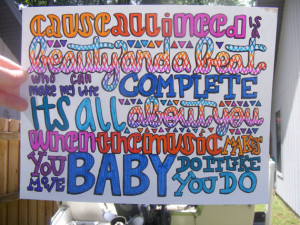 cause all i need is a
beauty and a beat
who can make my life COMPLETE
its all about you
when the music MAKES
YOU MOVE BABY DO IT LIKE YOU DO